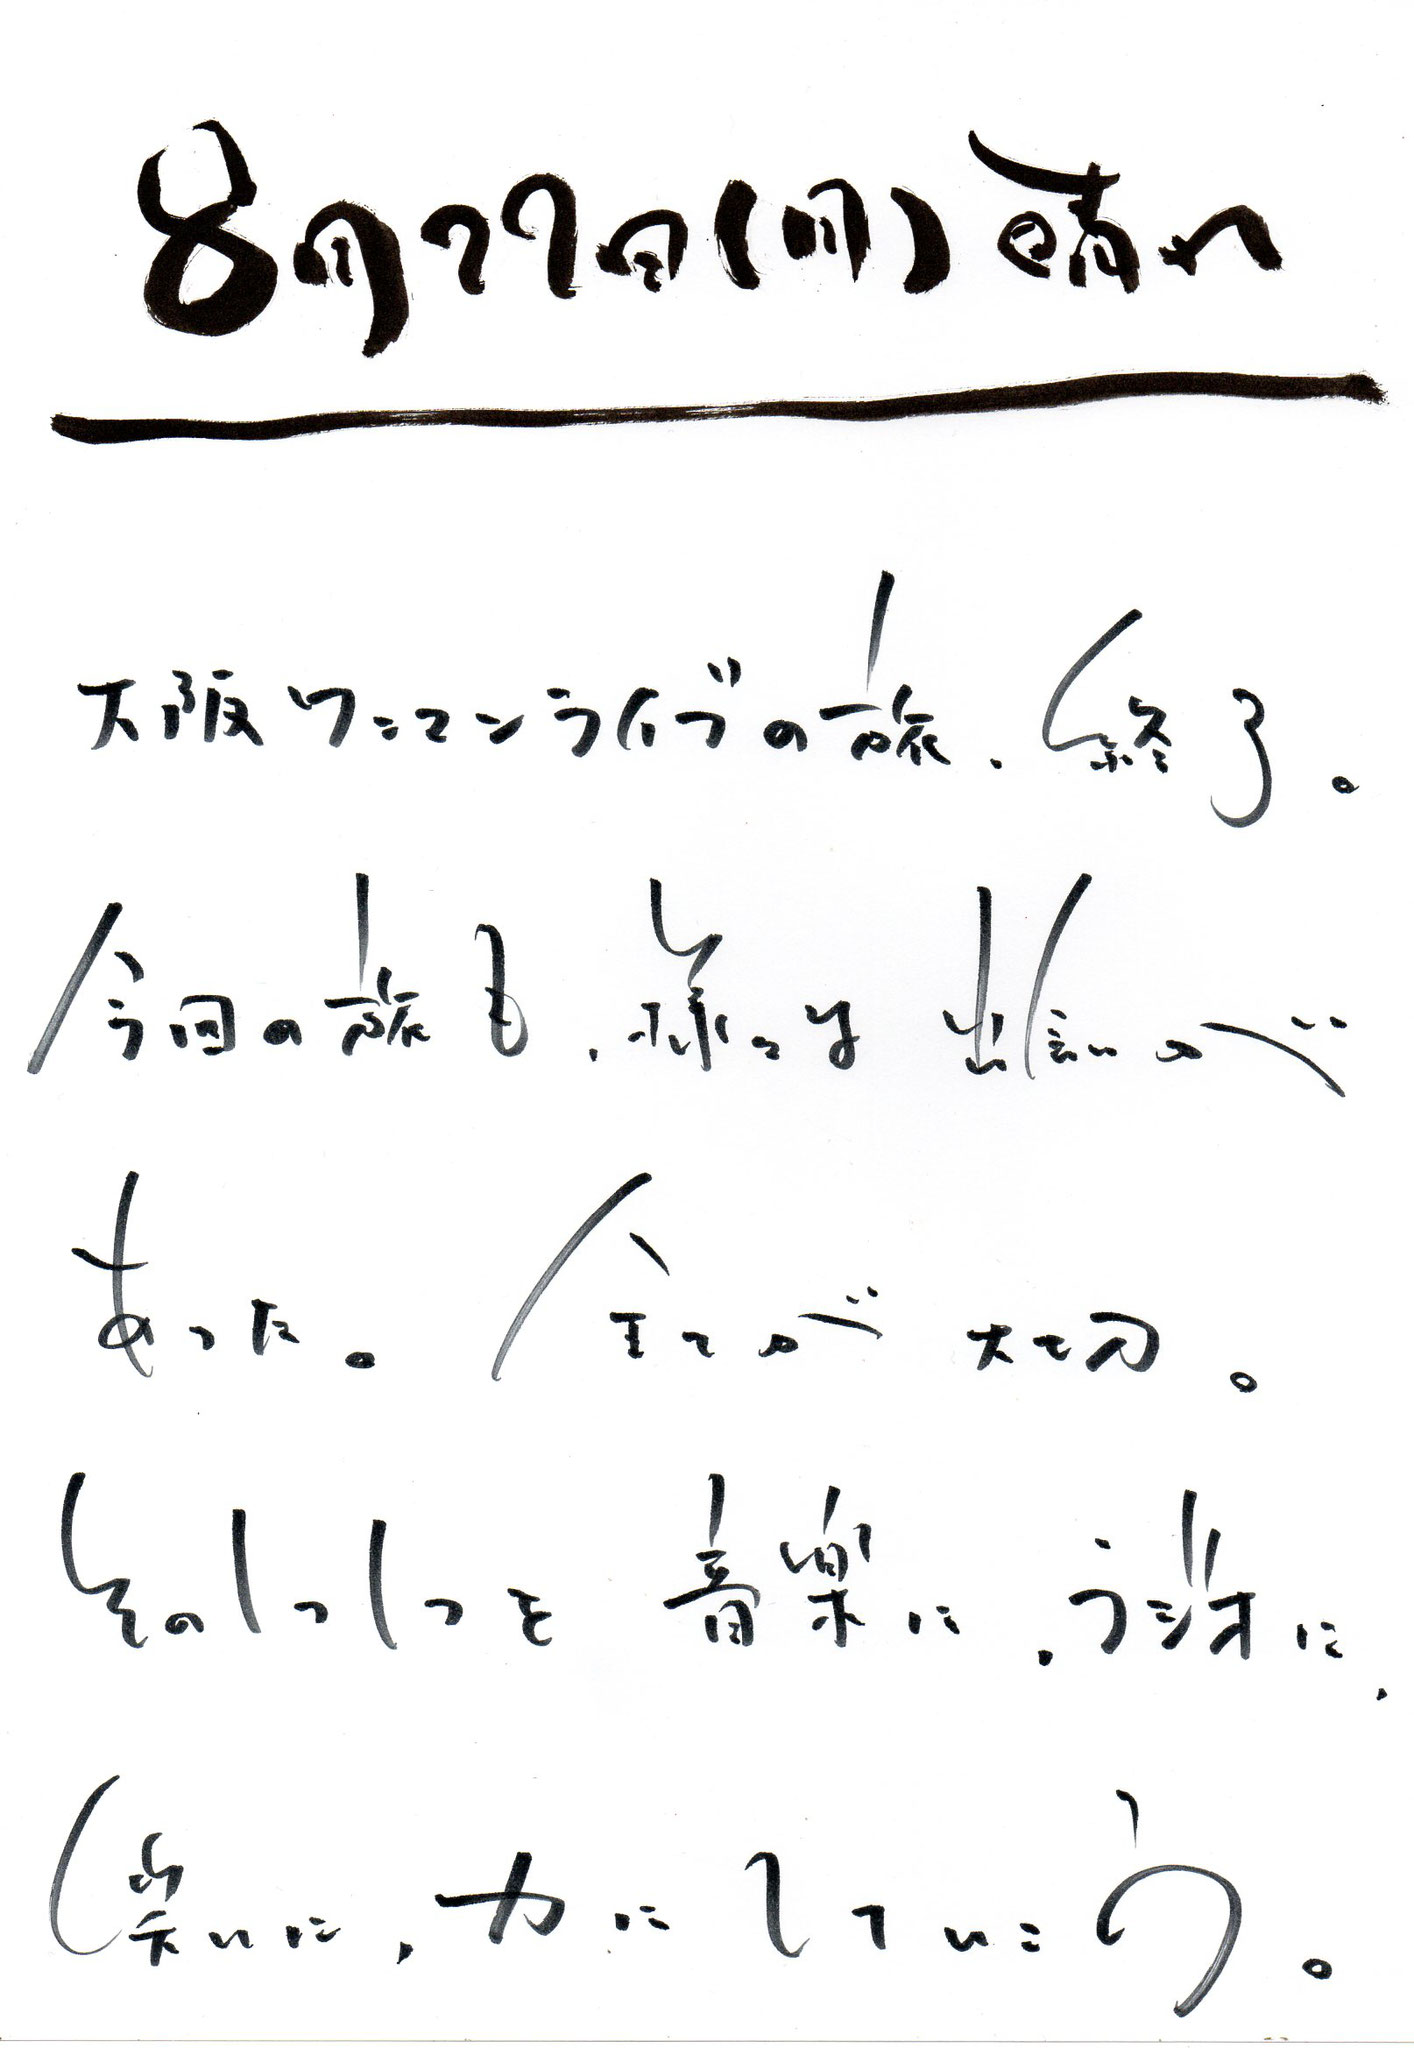 8月27日(月)晴れ
大阪ワンマンライブの旅、終了。
今回の旅も、様々な出会いが
あった。全てが大切。
その1つ1つを音楽に、ラジオに、
笑いに、力にしていこう。